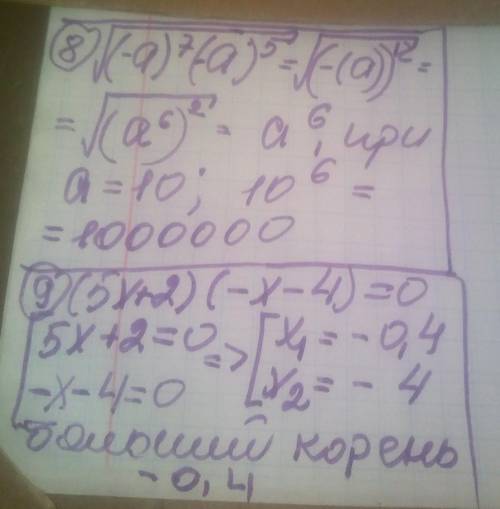 ⑧ √((-a)⁷(-a)⁵) = √((-(a))¹²) =
= √((a⁶)²) = a⁶, при
a = 10; 10⁶ =
= 1000000
⑨ (5x+2)(-x-4)=0
[5x+2=0 => [x₁ = -0,4
-x-4=0 x₂ = -4
больший корень
-0,4